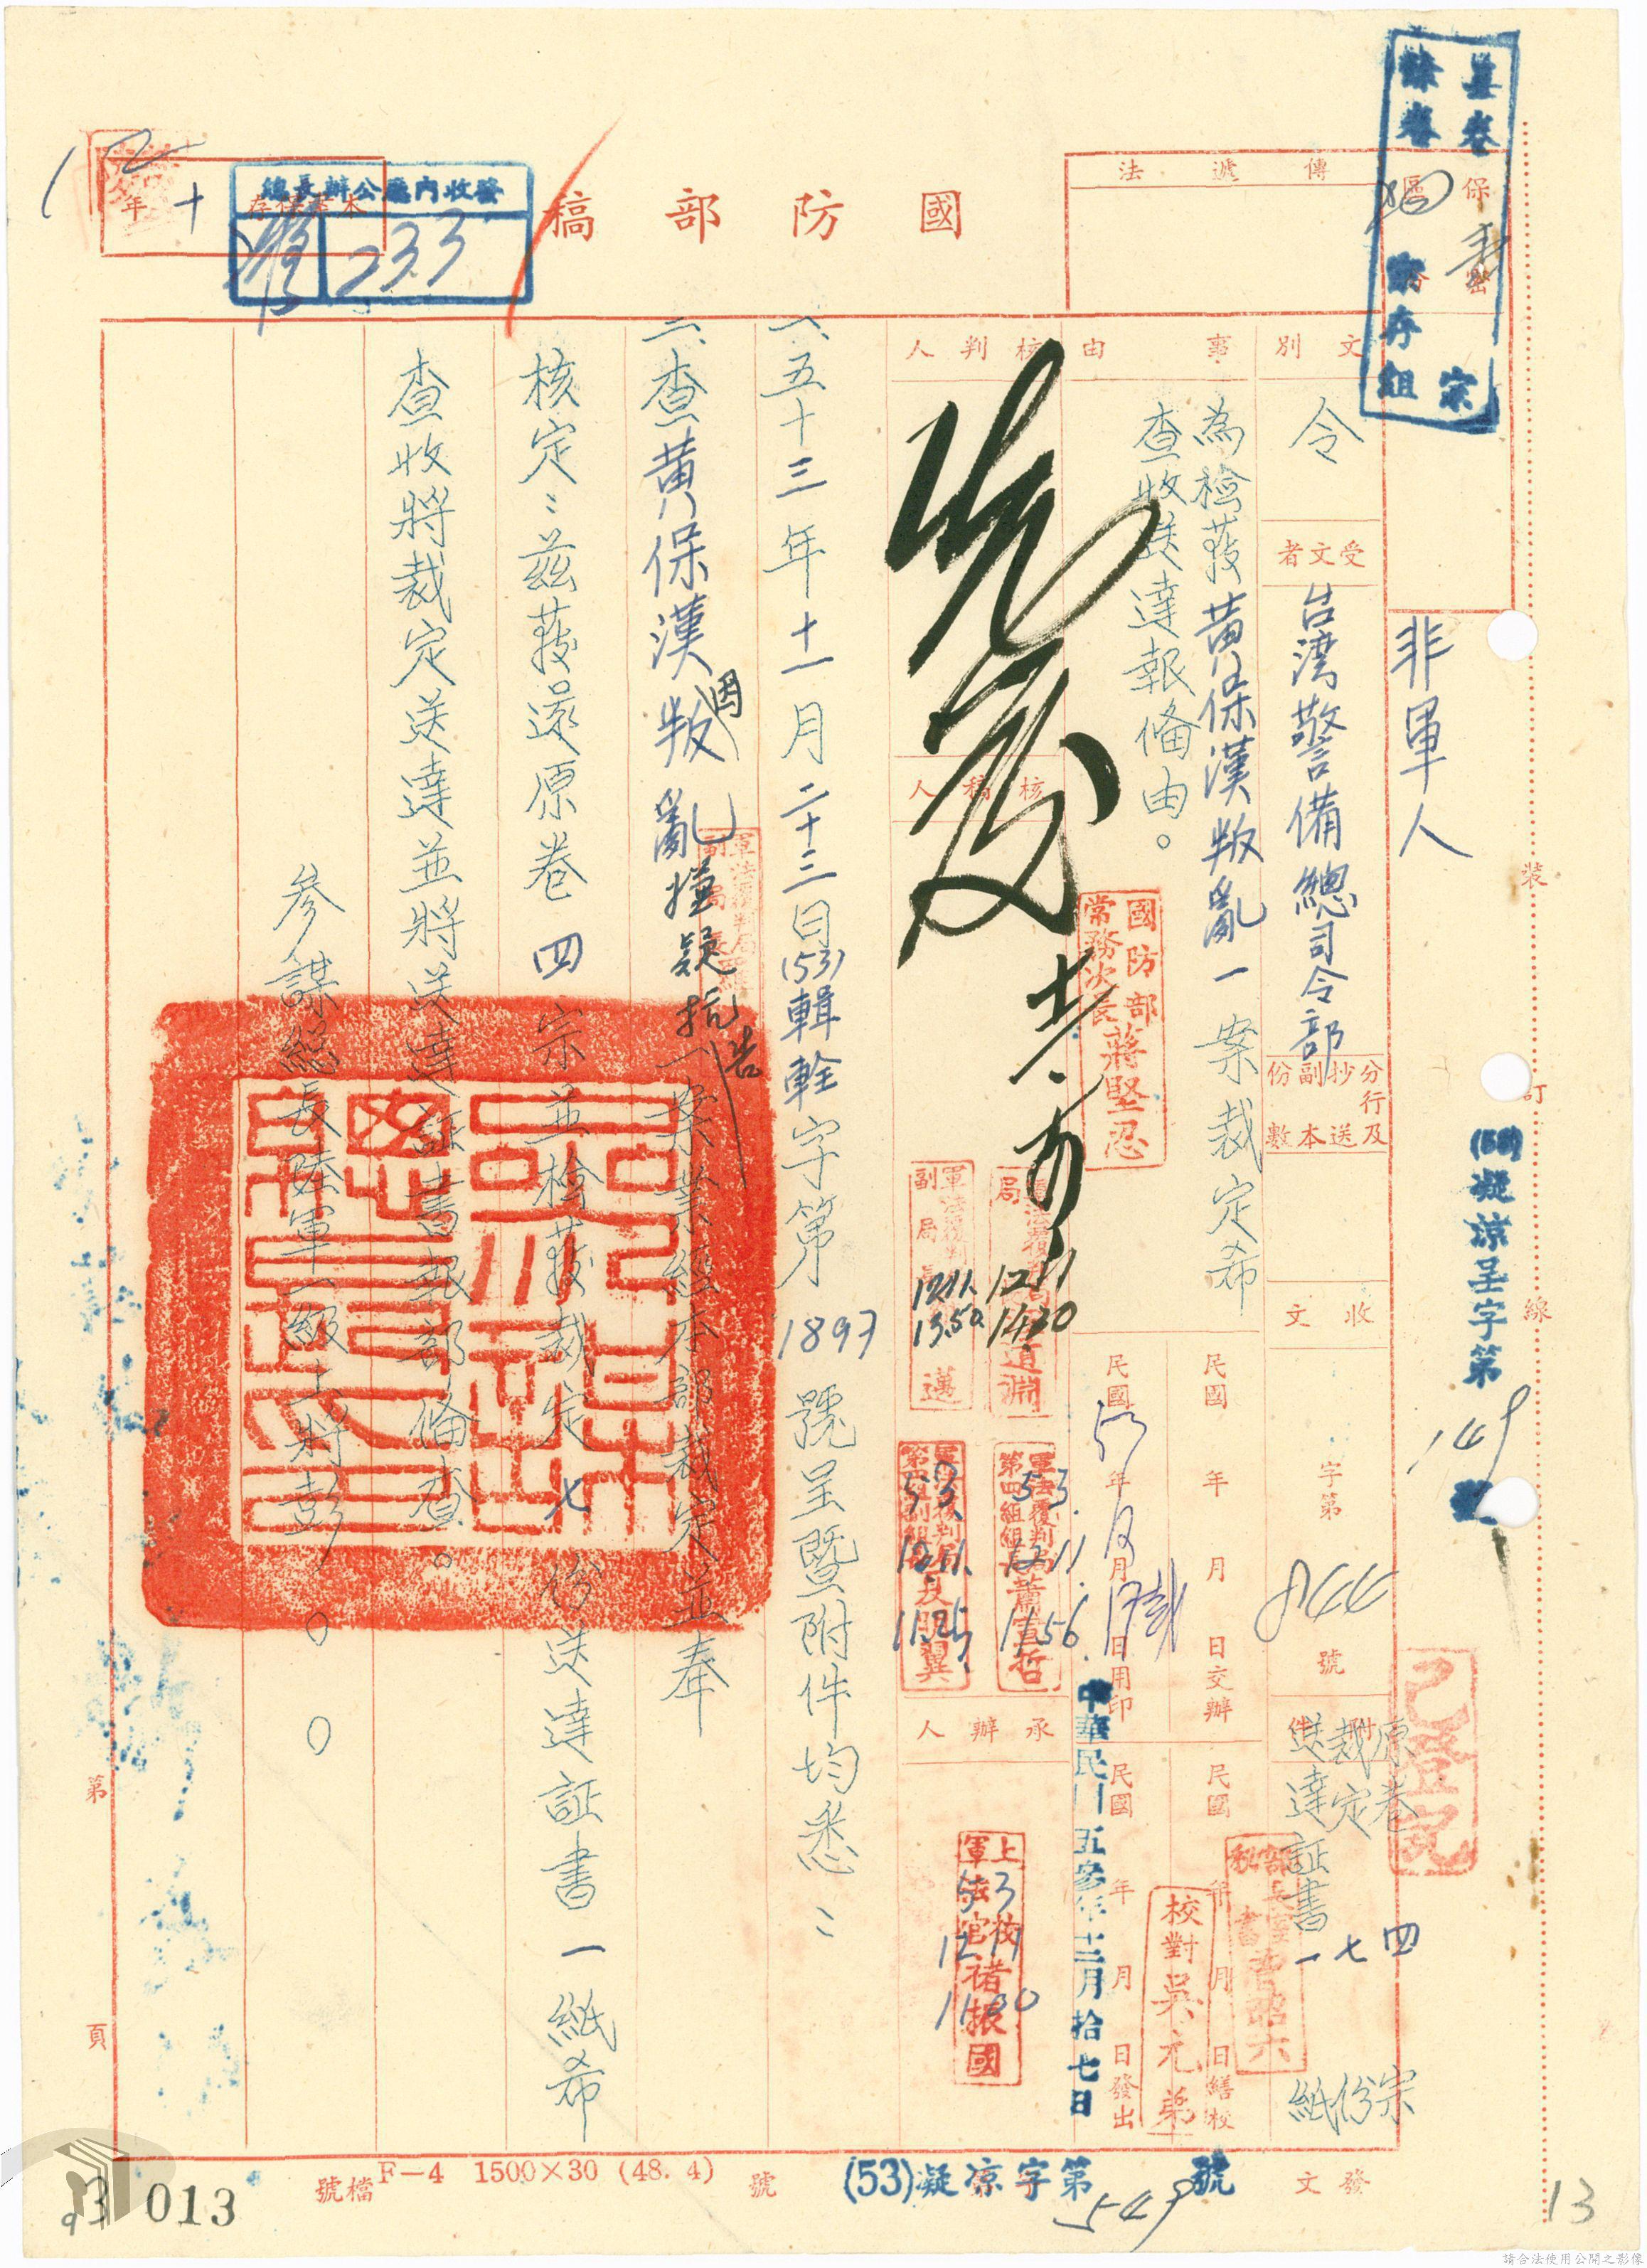 國防部稿
傳遞法
保密區分
本案保存
十年
總長辦公廳內收發
233
12
非軍人
文別
令
受文者
台灣警備總司令部
分行及抄送副本份數
收文
字第
844
號
附件
原卷 四 宗
裁定 七 份
送達証書 一 紙
已登記
事由
為檢發黃保漢叛亂一案裁定希
查收送達報備由。
民國 年 月 日交辦
民國 53 年 12 月 17 日用印
民國 年 月 日繕校
民國 年 月 日發出
中華民國五參年十二月拾七日
校對吳元弟
核判人
國防部常務次長蔣堅忍
核稿人
12.11. 14.20
12.11. 13.50.
53. 12.11. 11.56
53. 12.11. 11.25
承辦人
上校軍法官褚振國
53 12.11 11.20
一、五十三年十一月二十三日(53)輯銓字第1897號呈暨附件均悉:
二、查黃保漢因叛亂嫌疑抗告一案業經本部裁定並奉
核定:茲發還原卷四宗並檢發裁定七份送達証書一紙希
查收將裁定送達並將送達証書報部備查。
參謀總長陸軍一級上將彭○○○
裝
訂
線
(53)凝凉呈字第149號
第
頁
檔號
F-4 1500×30 (48.4)
號
發文
(53)凝凉字第549號
013
13
請合法使用公開之影像